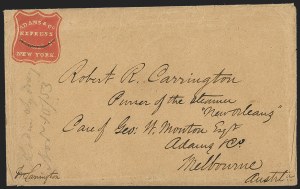 ADAMS & CO
EXPRESS
NEW YORK
Robert R. Carrington
Purser of the steamer
"New Orleans"
Care of Geo. W. Monton Esqr
Adams & Co
Melbourne
Austrl
Carrington